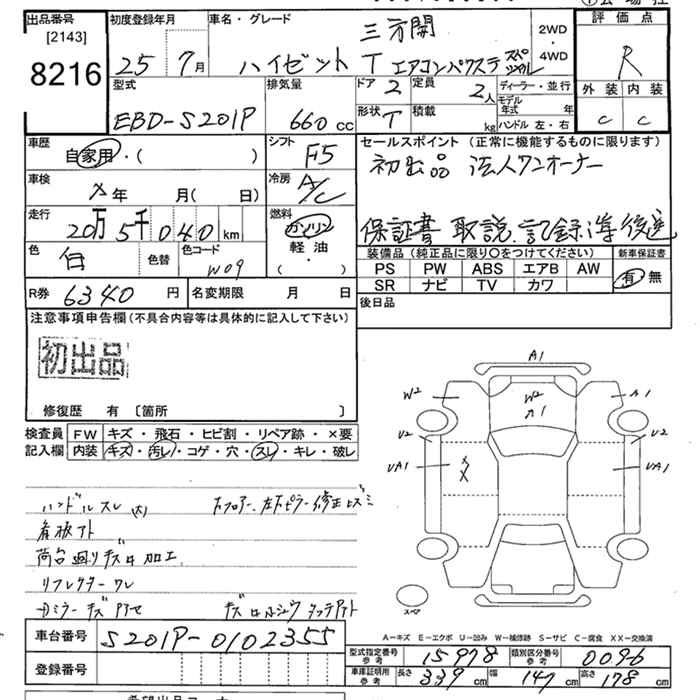 出品番号
[2143]
8216
初度登録年月
25 7月
車名・グレード
三方開
ハイゼット T エアコンパワステ スペシャル
2WD
・
4WD
評価点
R
外装 内装
C C
型式
EBD-S201P
排気量
660 CC
ドア 2
定員 2人
ディーラー・並行
モデル年式 年
形状 T
積載 kg
ハンドル 左・右
車歴
自家用・( )
シフト F5
セールスポイント (正常に機能するものに限ります)
初出品 法人ワンオーナー
車検
×年 月( 日)
冷房 A/C
走行
20万5千040km
燃料
ガソリン
軽油
( ・ )
保証書 取説 記録簿後送
色
白
色替
色コード
W09
装備品 (純正品に限り○をつけてください)
新車保証書
PS PW ABS エアB AW
SR ナビ TV カワ
有 無
R券 6340円
名変期限 月 日
後日品
注意事項申告欄(不具合内容等は具体的に記入して下さい)
初出品
修復歴 有 〔箇所 〕
検査員
記入欄
FW キズ・飛石・ヒビ割・リペア跡・×要
内装 キズ・汚レ・コゲ・穴・スレ・キレ・破レ
ハンドルスレ(大)
看板アト
荷台廻りキズロ加工
リフレクターワレ
A1
W2 W2 A1
↗1
U2 U2
UA1 ×× UA1
スペア
A－キズ E－エクボ U－凹み W－補修跡 S－サビ C－腐食 XX－交換済
車台番号 S201P-0102355
登録番号
型式指定番号
参考
15978
類別区分番号
参考
0096
車庫証明
参考
長さ 339cm
幅 147cm
高さ 178cm